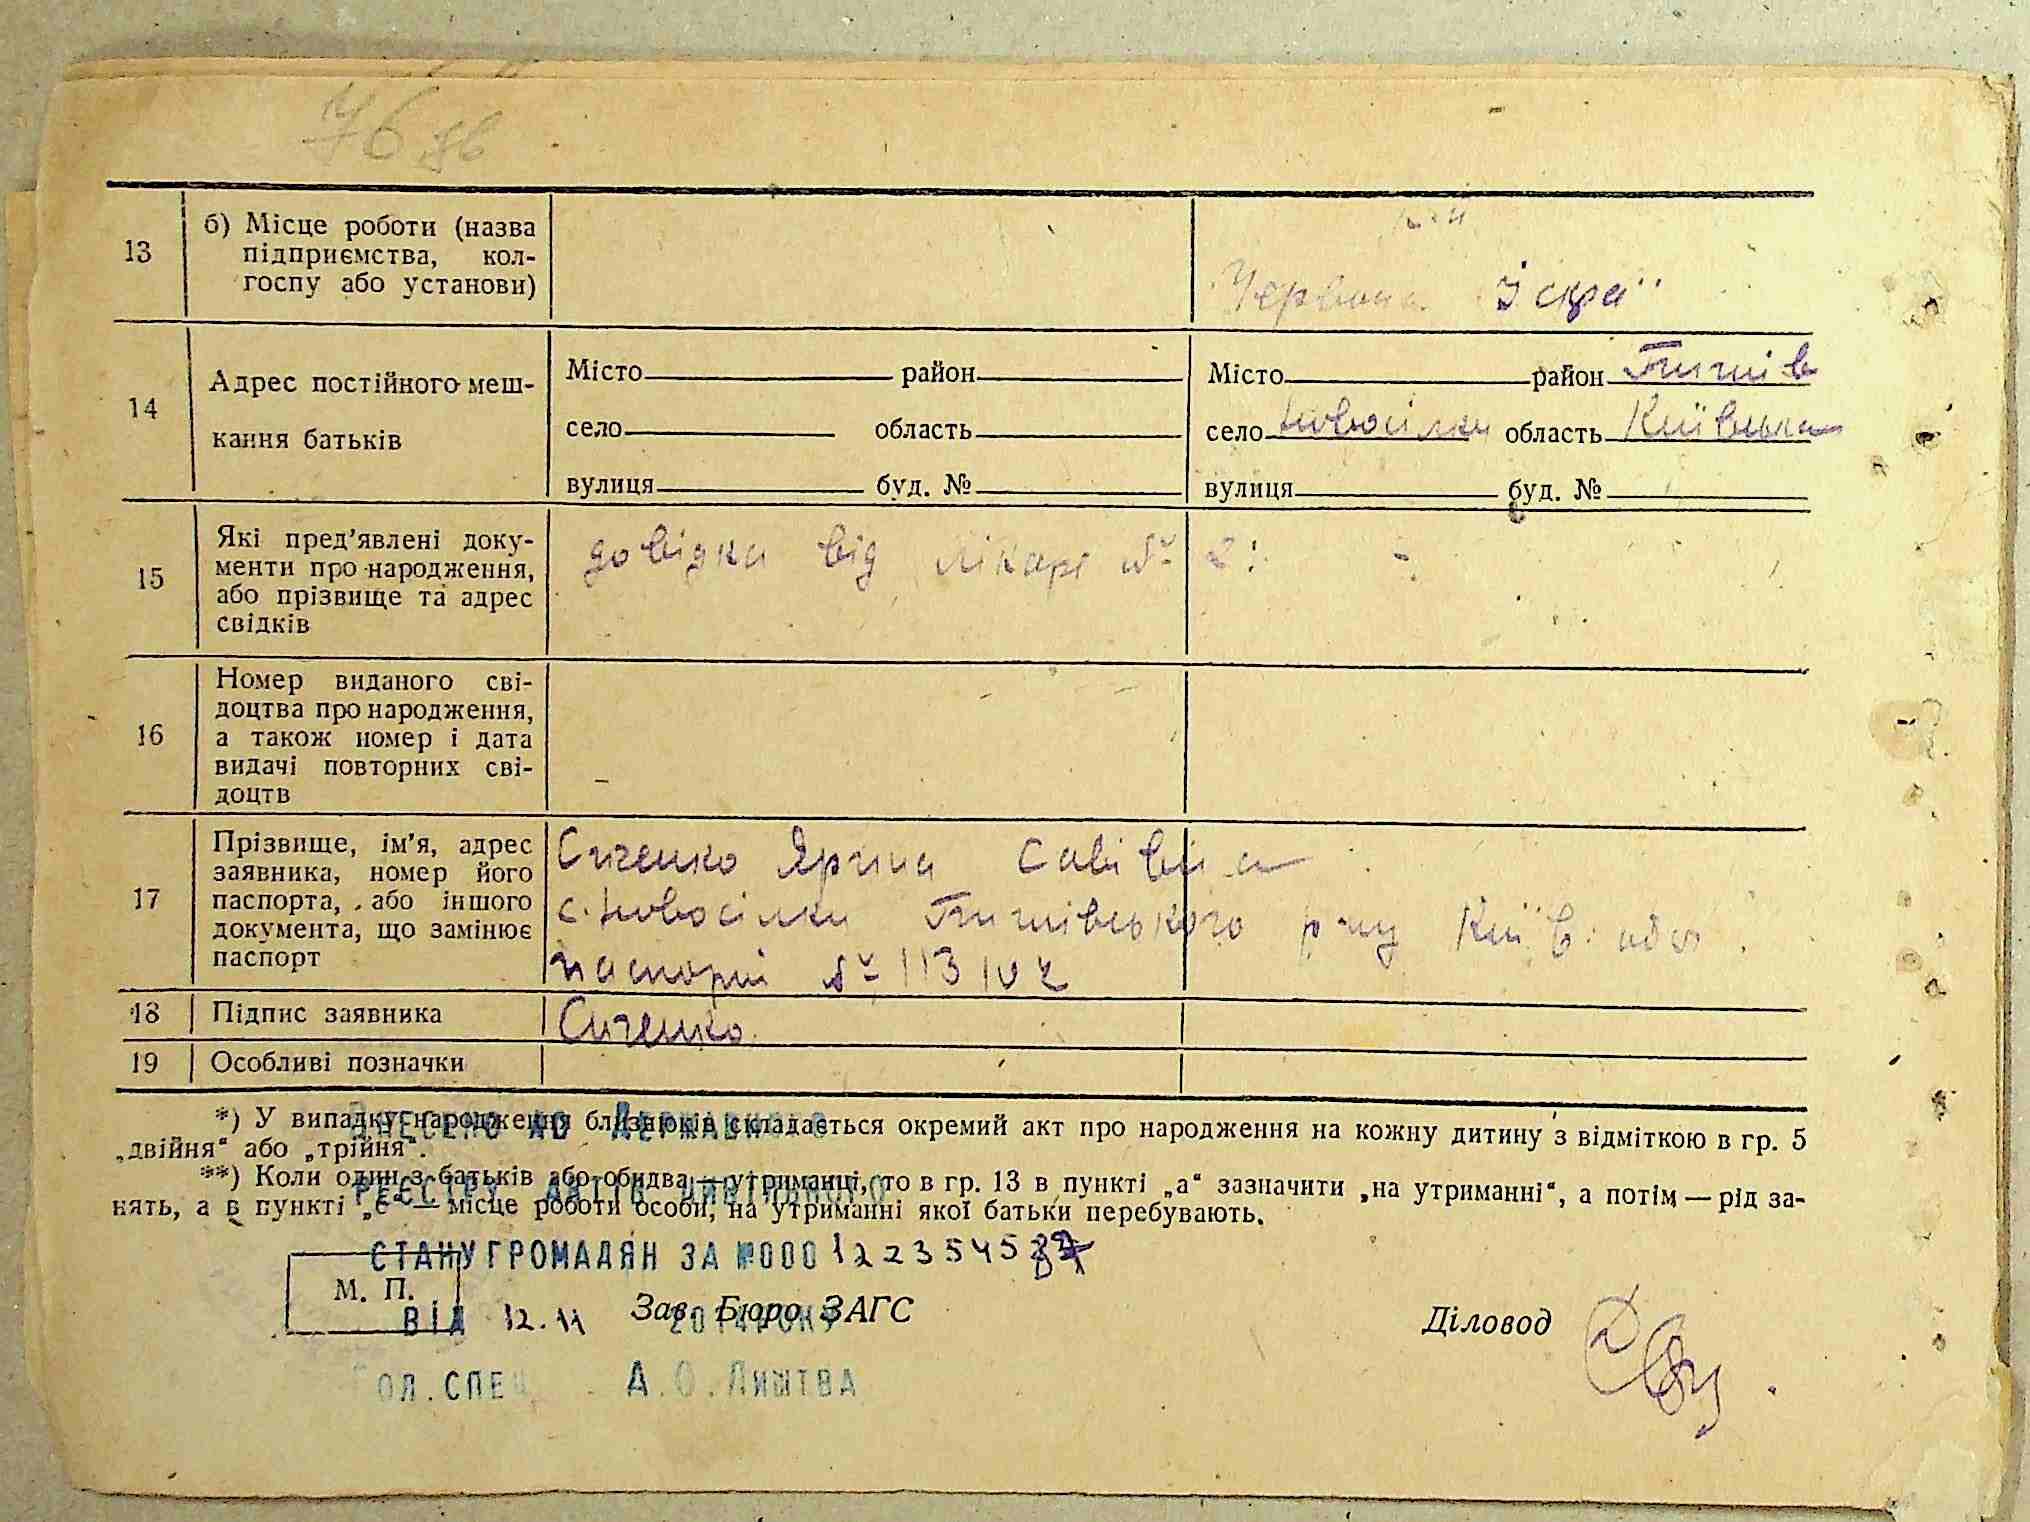 76 зв
13
б) Місце роботи (назва
підприємства, кол-
госпу або установи)
Червона Іскра"
14
Адрес постійного меш-
кання батьків
Місто район
село область
вулиця буд. №
Місто район
село Новосілки область Київська
вулиця буд. №
15
Які пред'явлені доку-
менти про народження,
або прізвище та адрес
свідків
довідка від лікаря № 2:
16
Номер виданого сві-
доцтва про народження,
а також номер і дата
видачі повторних сві-
доцтв
17
Прізвище, ім'я, адрес
заявника, номер його
паспорта, або іншого
документа, що замінює
паспорт
Сиченко Ярина Савівна
с. Новосілки р-ну Київ. обл.
паспорт № 113102
18
Підпис заявника
Сиченко
19
Особливі позначки
*) У випадку народження близнюків складається окремий акт про народження на кожну дитину з відміткою в гр. 5
„двійня" або „трійня".
**) Коли один з батьків або обидва — утриманці, то в гр. 13 в пункті „а" зазначити „на утриманні", а потім — рід за-
нять, а в пункті „б" — місце роботи особи, на утриманні якої батьки перебувають.
ВНЕСЕНО ДО ДЕРЖАВНОГО
РЕЄСТРУ АКТІВ ЦИВІЛЬНОГО
СТАНУ ГРОМАДЯН ЗА №000 1223545
М. П.
ВІД 12.11 2014 РОКУ
Зав. Бюро ЗАГС
Діловод
ГОЛ. СПЕЦ. А.О. ЛИШТВА